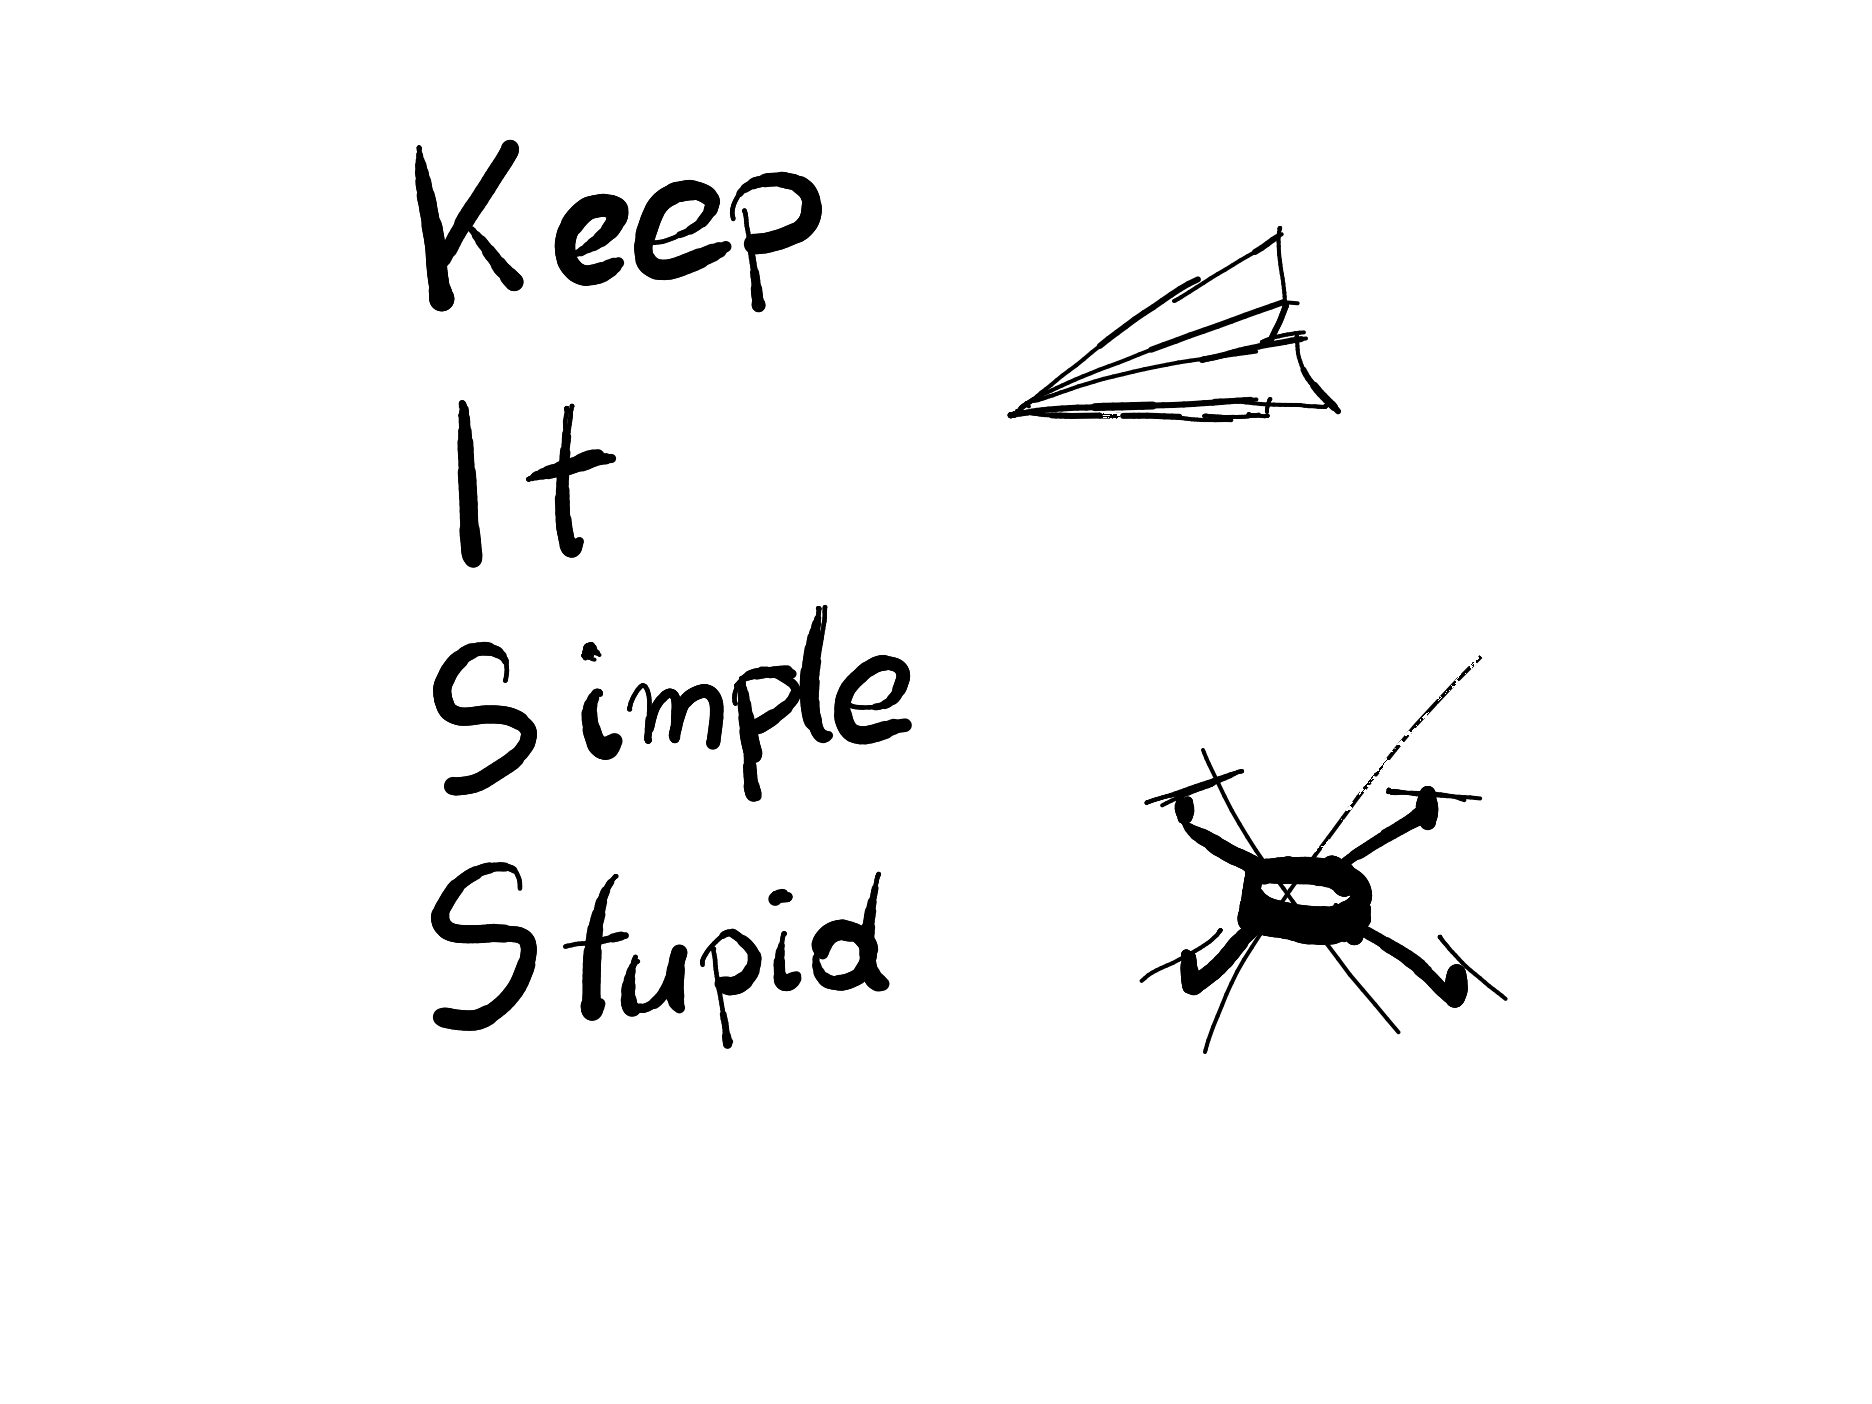 Keep
It
Simple
Stupid